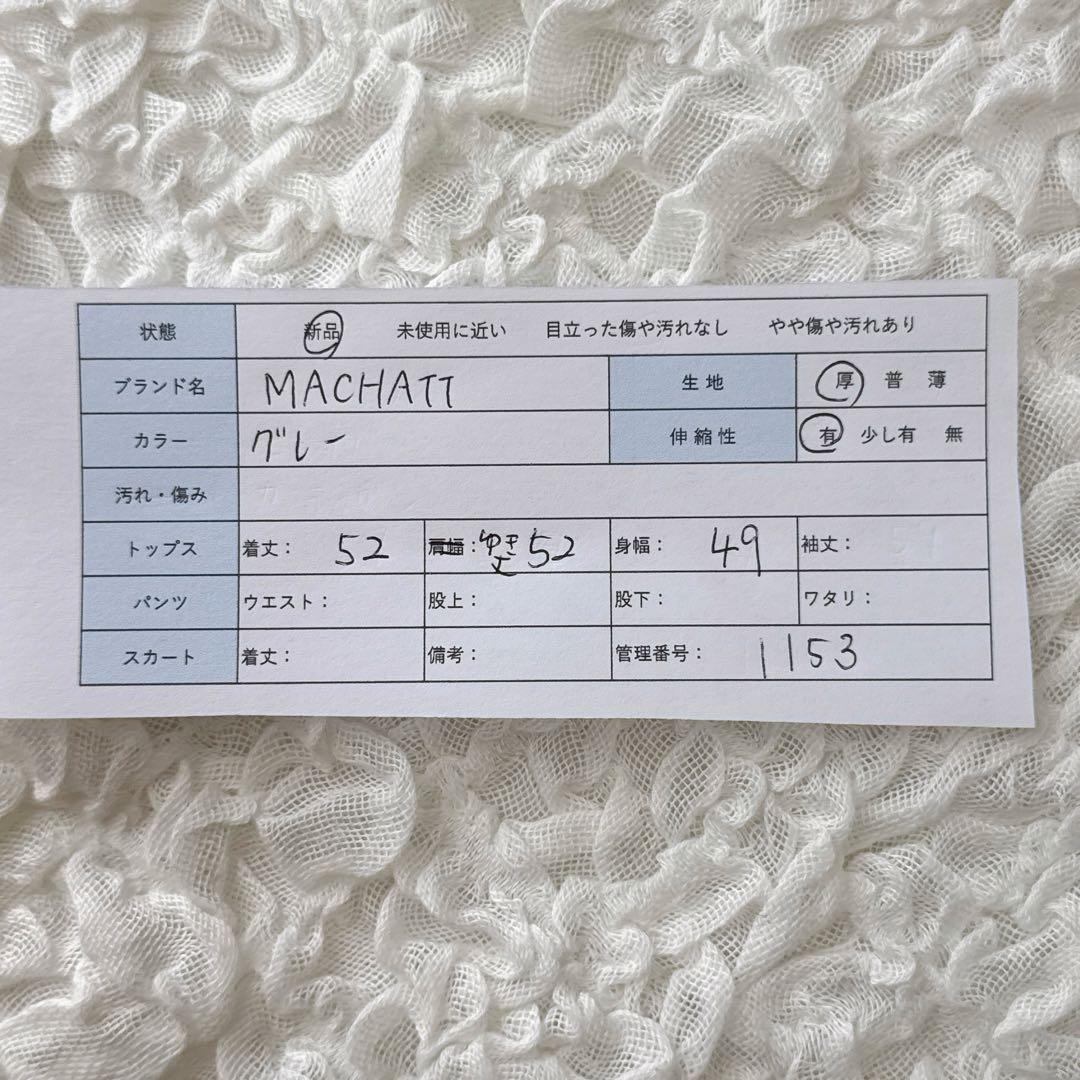 状態 新品 未使用に近い 目立った傷や汚れなし やや傷や汚れあり
ブランド名 MACHATT 生地 厚 普 薄
カラー グレー 伸縮性 有 少し有 無
汚れ・傷み
トップス 着丈： 52 肩幅：ゆき丈 52 身幅： 49 袖丈：
パンツ ウエスト： 股上： 股下： ワタリ：
スカート 着丈： 備考： 管理番号： 1153